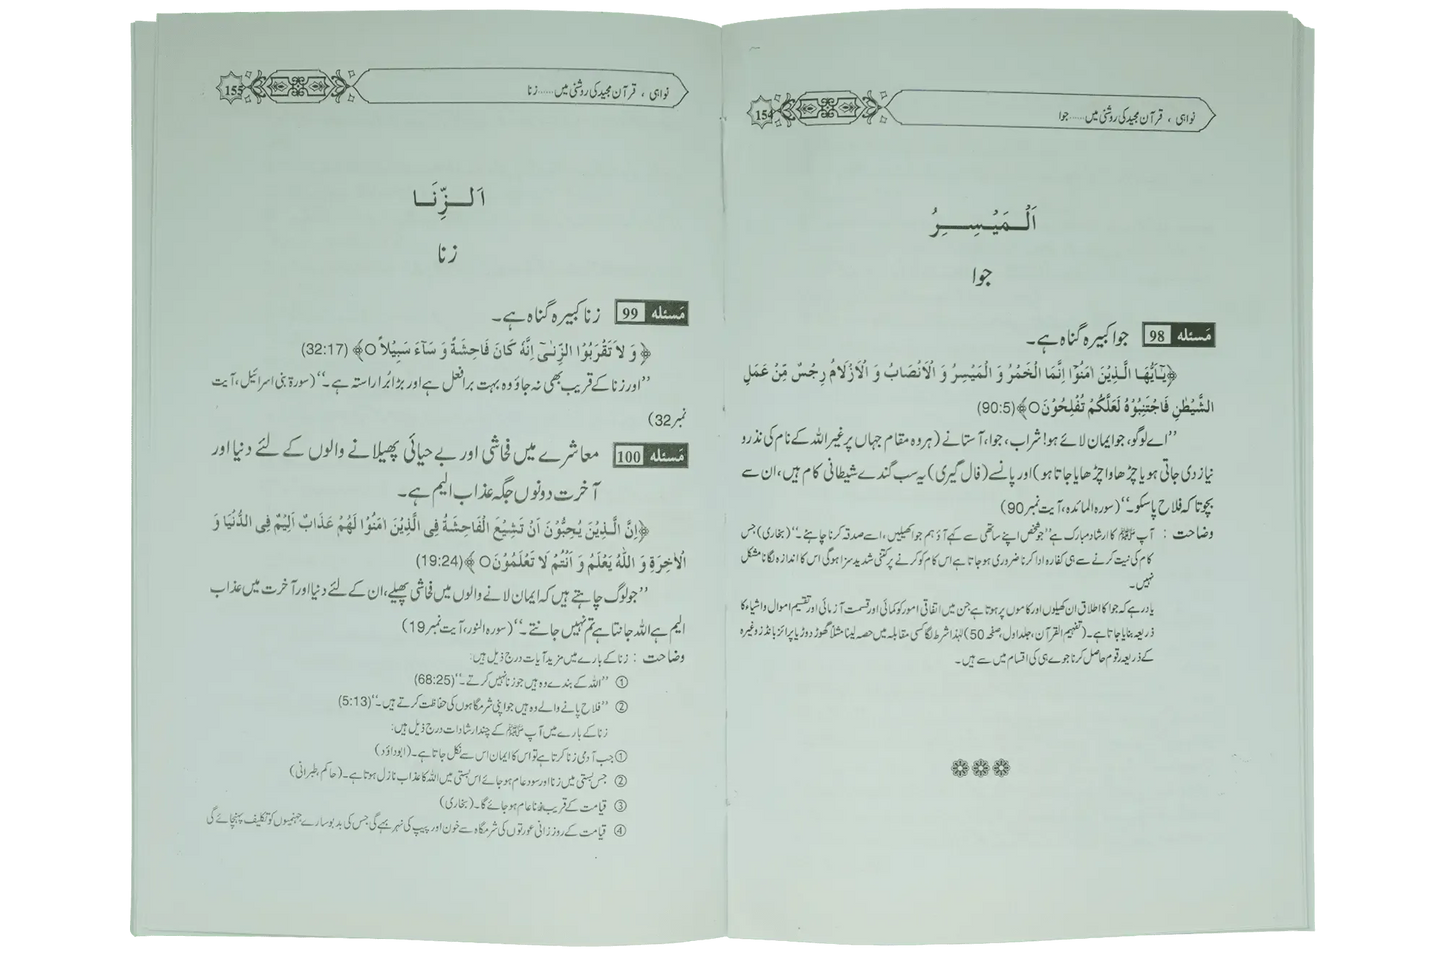 نواہی ، قرآن مجید کی روشنی میں......جوا
154
اَلْمَيْسِرُ
جوا
مَسئله 98 جوا کبیرہ گناہ ہے۔
﴿يٰٓاَيُّهَا الَّذِيْنَ اٰمَنُوْٓا اِنَّمَا الْخَمْرُ وَ الْمَيْسِرُ وَ الْاَنْصَابُ وَ الْاَزْلَامُ رِجْسٌ مِّنْ عَمَلِ
الشَّيْطٰنِ فَاجْتَنِبُوْهُ لَعَلَّكُمْ تُفْلِحُوْنَ○﴾(90:5)
’’اے لوگو، جو ایمان لائے ہو! شراب، جوا، آستانے (ہر وہ مقام جہاں پر غیر اللہ کے نام کی نذر و
نیاز دی جاتی ہو یا چڑھاوا چڑھایا جاتا ہو) اور پانسے (فال گیری) یہ سب گندے شیطانی کام ہیں، ان سے
بچو تاکہ فلاح پاسکو۔‘‘ (سورہ المائدہ، آیت نمبر 90)
وضاحت : آپ ﷺ کا ارشاد مبارک ہے ’’جو شخص اپنے ساتھی سے کہے آؤ ہم جوا کھیلیں، اسے صدقہ کرنا چاہئے۔‘‘ (بخاری) جس
کام کی نیت کرنے سے ہی کفارہ ادا کرنا ضروری ہوجاتا ہے اس کام کو کرنے پر کتنی شدید سزا ہوگی اس کا اندازہ لگانا مشکل
نہیں۔
یاد رہے کہ جوا کا اطلاق ان کھیلوں اور کاموں پر ہوتا ہے جن میں اتفاقی امور کو کمائی اور قسمت آزمائی اور تقسیم اموال و اشیاء کا
ذریعہ بنایا جاتا ہے۔ (تفہیم القرآن، جلد اول، صفحہ 50) لہٰذا شرط لگا کسی مقابلہ میں حصہ لینا مثلاً گھوڑ دوڑ یا پرائز بانڈز وغیرہ
کے ذریعہ رقوم حاصل کرنا جوے ہی کی اقسام میں سے ہیں۔
نواہی ، قرآن مجید کی روشنی میں......زنا
155
اَلزِّنَا
زنا
مَسئله 99 زنا کبیرہ گناہ ہے۔
﴿وَ لاَ تَقْرَبُوْا الزِّنٰىٓ اِنَّهٗ كَانَ فَاحِشَةً وَ سَآءَ سَبِيْلاً○﴾ (32:17)
’’اور زنا کے قریب بھی نہ جاؤ وہ بہت برا فعل ہے اور بڑا بُرا راستہ ہے۔‘‘ (سورۃ بنی اسرائیل، آیت
نمبر 32)
مَسئله 100 معاشرے میں فحاشی اور بے حیائی پھیلانے والوں کے لئے دنیا اور
آخرت دونوں جگہ عذاب الیم ہے۔
﴿اِنَّ الَّذِيْنَ يُحِبُّوْنَ اَنْ تَشِيْعَ الْفَاحِشَةُ فِى الَّذِيْنَ اٰمَنُوْا لَهُمْ عَذَابٌ اَلِيْمٌ فِى الدُّنْيَا وَ
الْاٰخِرَةِ وَ اللّٰهُ يَعْلَمُ وَ اَنْتُمْ لاَ تَعْلَمُوْنَ○﴾ (19:24)
’’جو لوگ چاہتے ہیں کہ ایمان لانے والوں میں فحاشی پھیلے، ان کے لئے دنیا اور آخرت میں عذاب
الیم ہے اللہ جانتا ہے تم نہیں جانتے۔‘‘ (سورہ النور، آیت نمبر 19)
وضاحت : زنا کے بارے میں مزید آیات درج ذیل ہیں:
① ’’اللہ کے بندے وہ ہیں جو زنا نہیں کرتے۔‘‘ (68:25)
② ’’فلاح پانے والے وہ ہیں جو اپنی شرمگاہوں کی حفاظت کرتے ہیں۔‘‘ (5:13)
زنا کے بارے میں آپ ﷺ کے چند ارشادات درج ذیل ہیں:
① جب آدمی زنا کرتا ہے تو اس کا ایمان اس سے نکل جاتا ہے۔ (ابوداؤد)
② جس بستی میں زنا اور سود عام ہوجائے اس بستی میں اللہ کا عذاب نازل ہوتا ہے۔ (حاکم، طبرانی)
③ قیامت کے قریب زنا عام ہوجائے گا۔ (بخاری)
④ قیامت کے روز زانی عورتوں کی شرمگاہ سے خون اور پیپ کی نہر بہے گی جس کی بدبو سارے جہنمیوں کو تکلیف پہنچائے گی